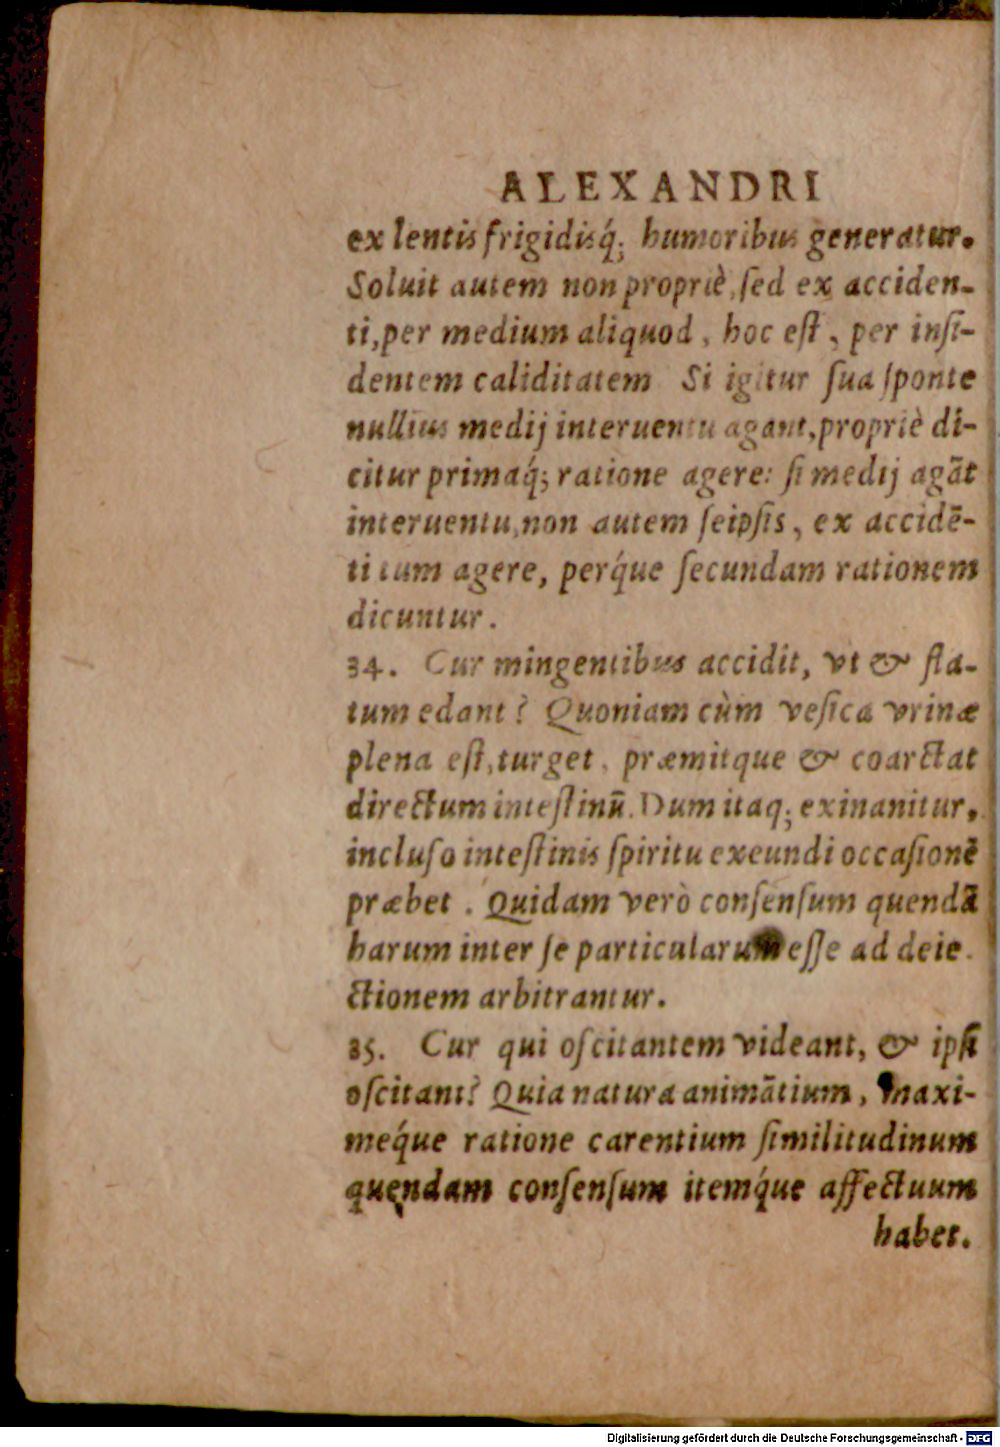 ALEXANDRI
ex lentis frigidisq́; humoribus generatur.
Soluit autem non propriè, ſed ex acciden-
ti, per medium aliquod, hoc eſt, per inſi-
dentem caliditatem Si igitur ſua ſponte
nullius medij interuentu agant, propriè di-
citur primaq́; ratione agere: ſi medij agãt
interuentu, non autem ſeipſis, ex accidẽ-
ti tum agere, perq́ue ſecundam rationem
dicuntur.
34. Cur mingentibus accidit, vt & fla-
tum edant? Quoniam cùm veſica vrinæ
plena eſt, turget, præmitque & coarctat
directum inteſtinũ. Dum itaq; exinanitur,
incluſo inteſtinis ſpiritu exeundi occaſionẽ
præbet. Quidam verò conſenſum quendã
harum inter ſe particularum eſſe ad deie-
ctionem arbitrantur.
35. Cur qui oſcitantem videant, & ipſi
oſcitant? Quia natura animãtium, maxi-
meq́ue ratione carentium ſimilitudinum
quendam conſenſum itemq́ue affectuum
habet.
Digitalisierung gefördert durch die Deutsche Forschungsgemeinschaft - DFG